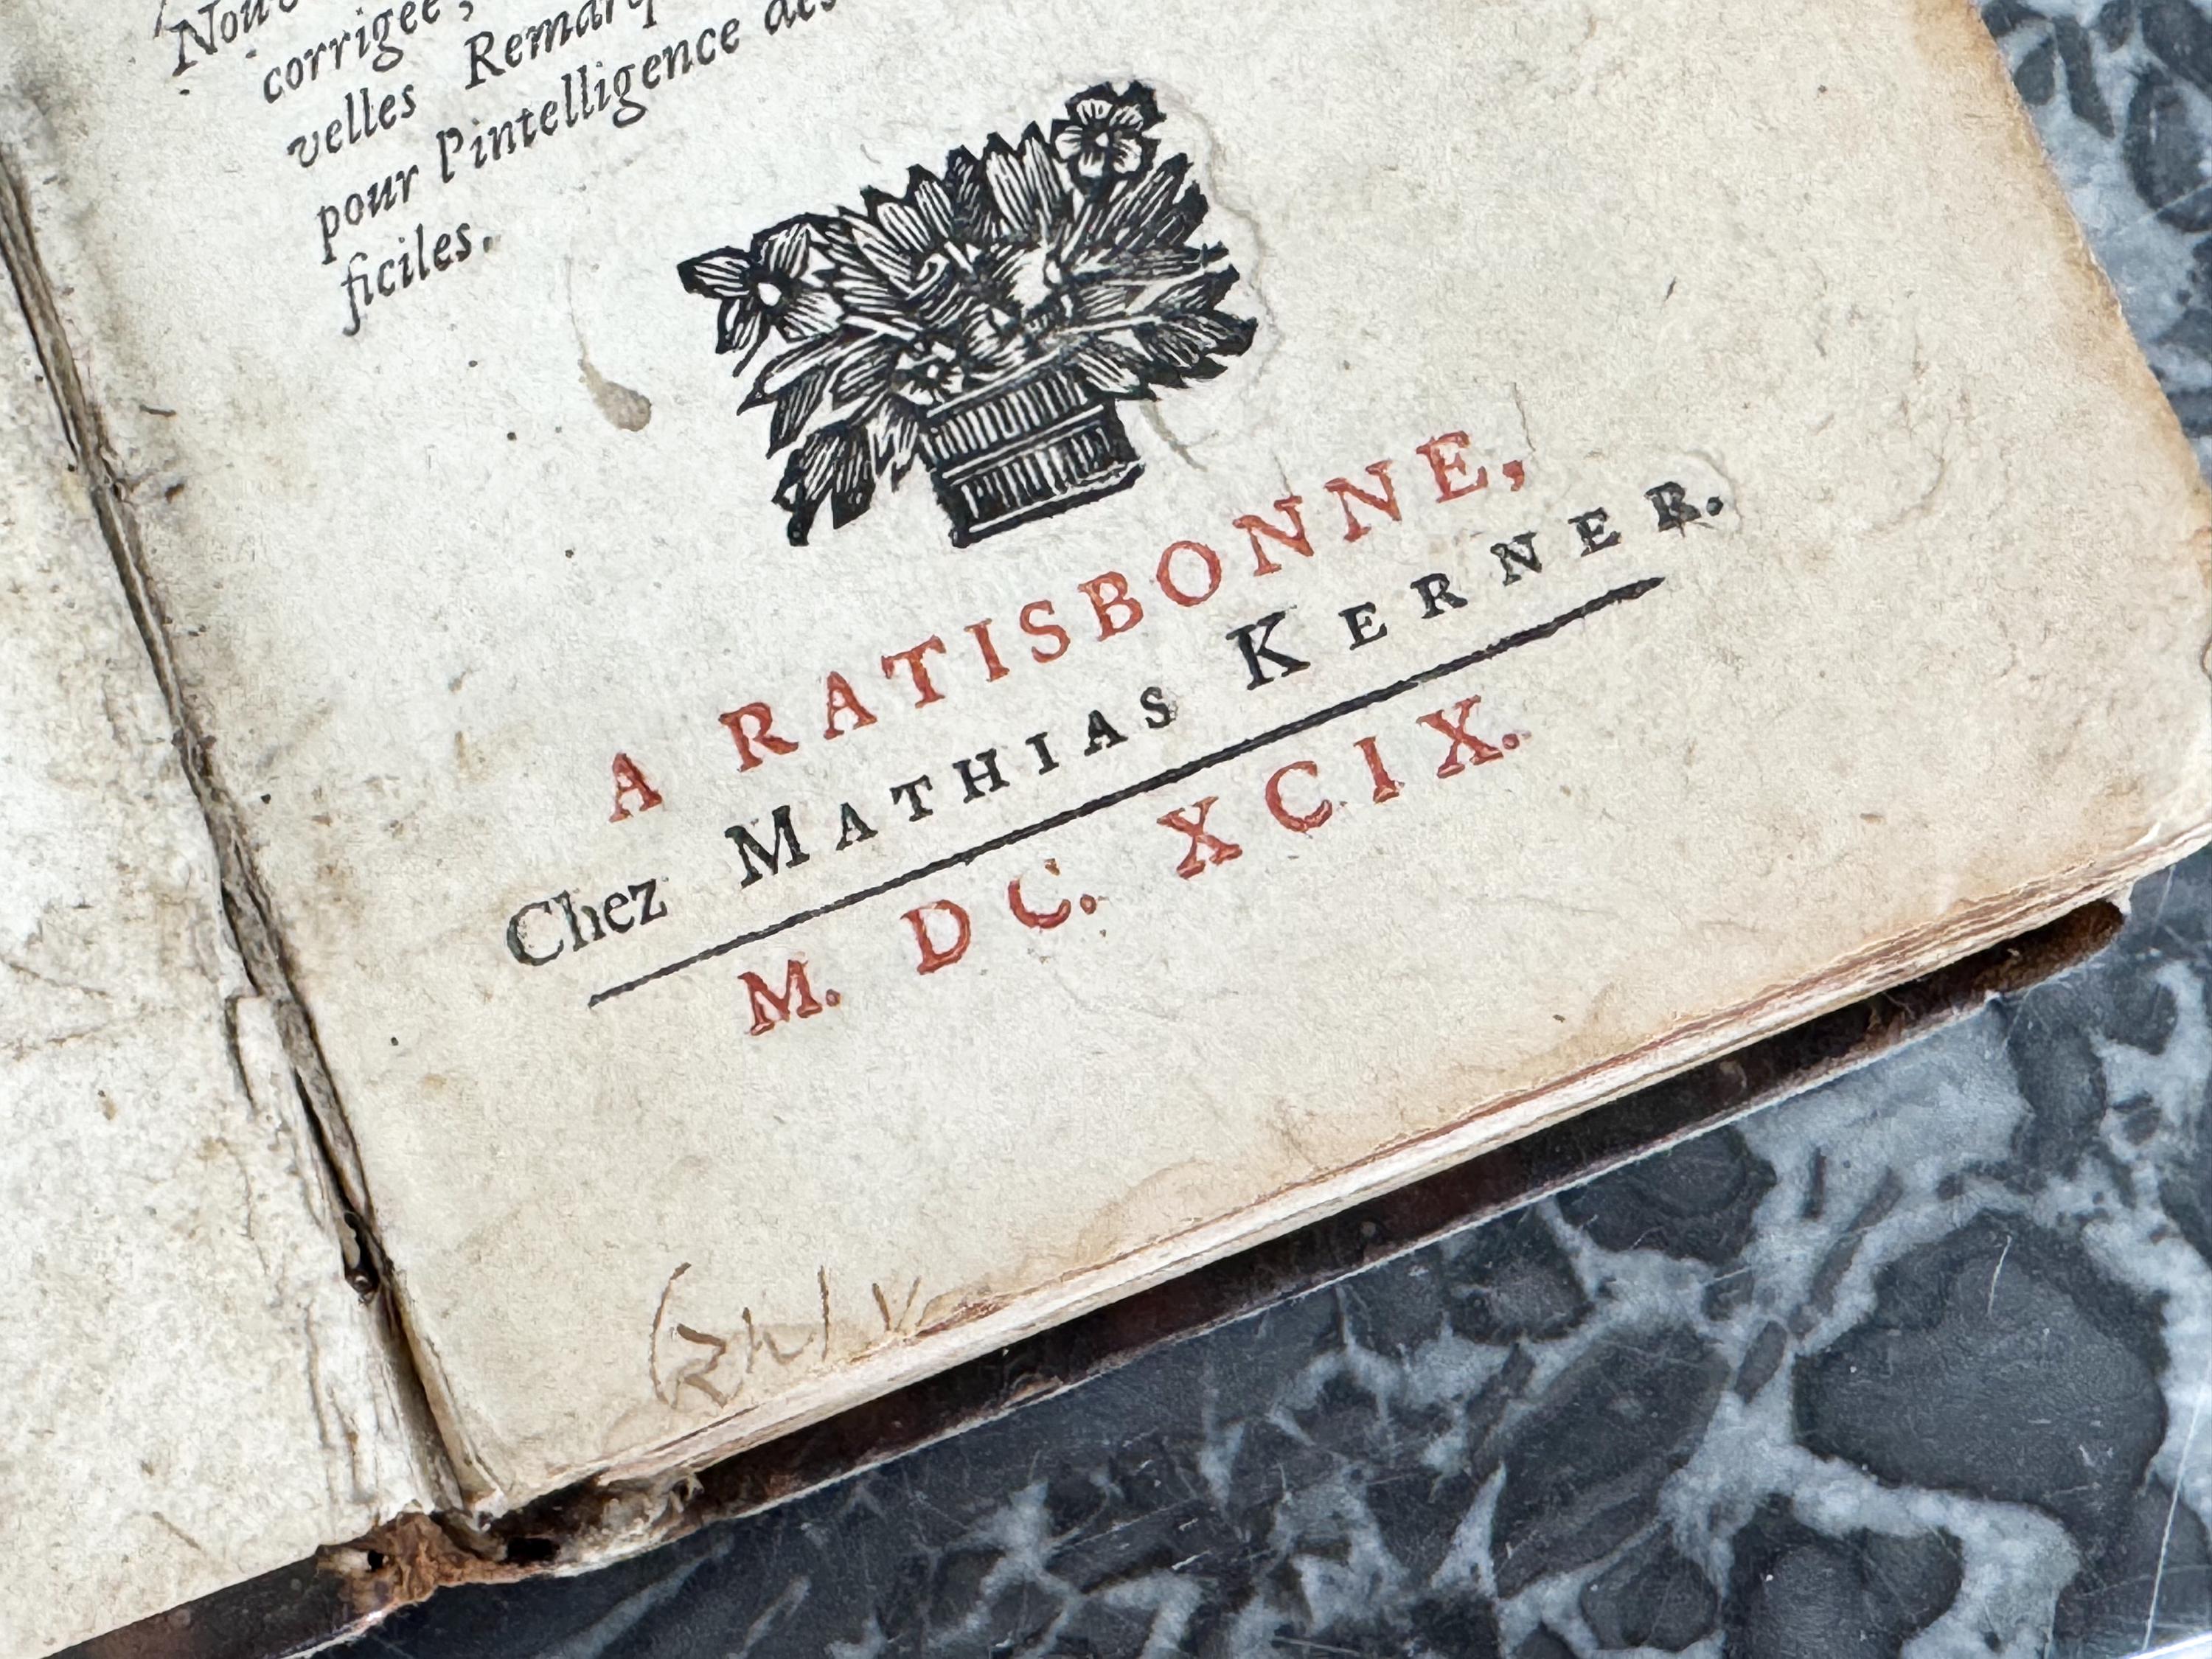 corrigée,
velles
pour l'intelligence des
ficiles.
A RATISBONNE,
Chez MATHIAS KERNER.
M. DC. XCIX.